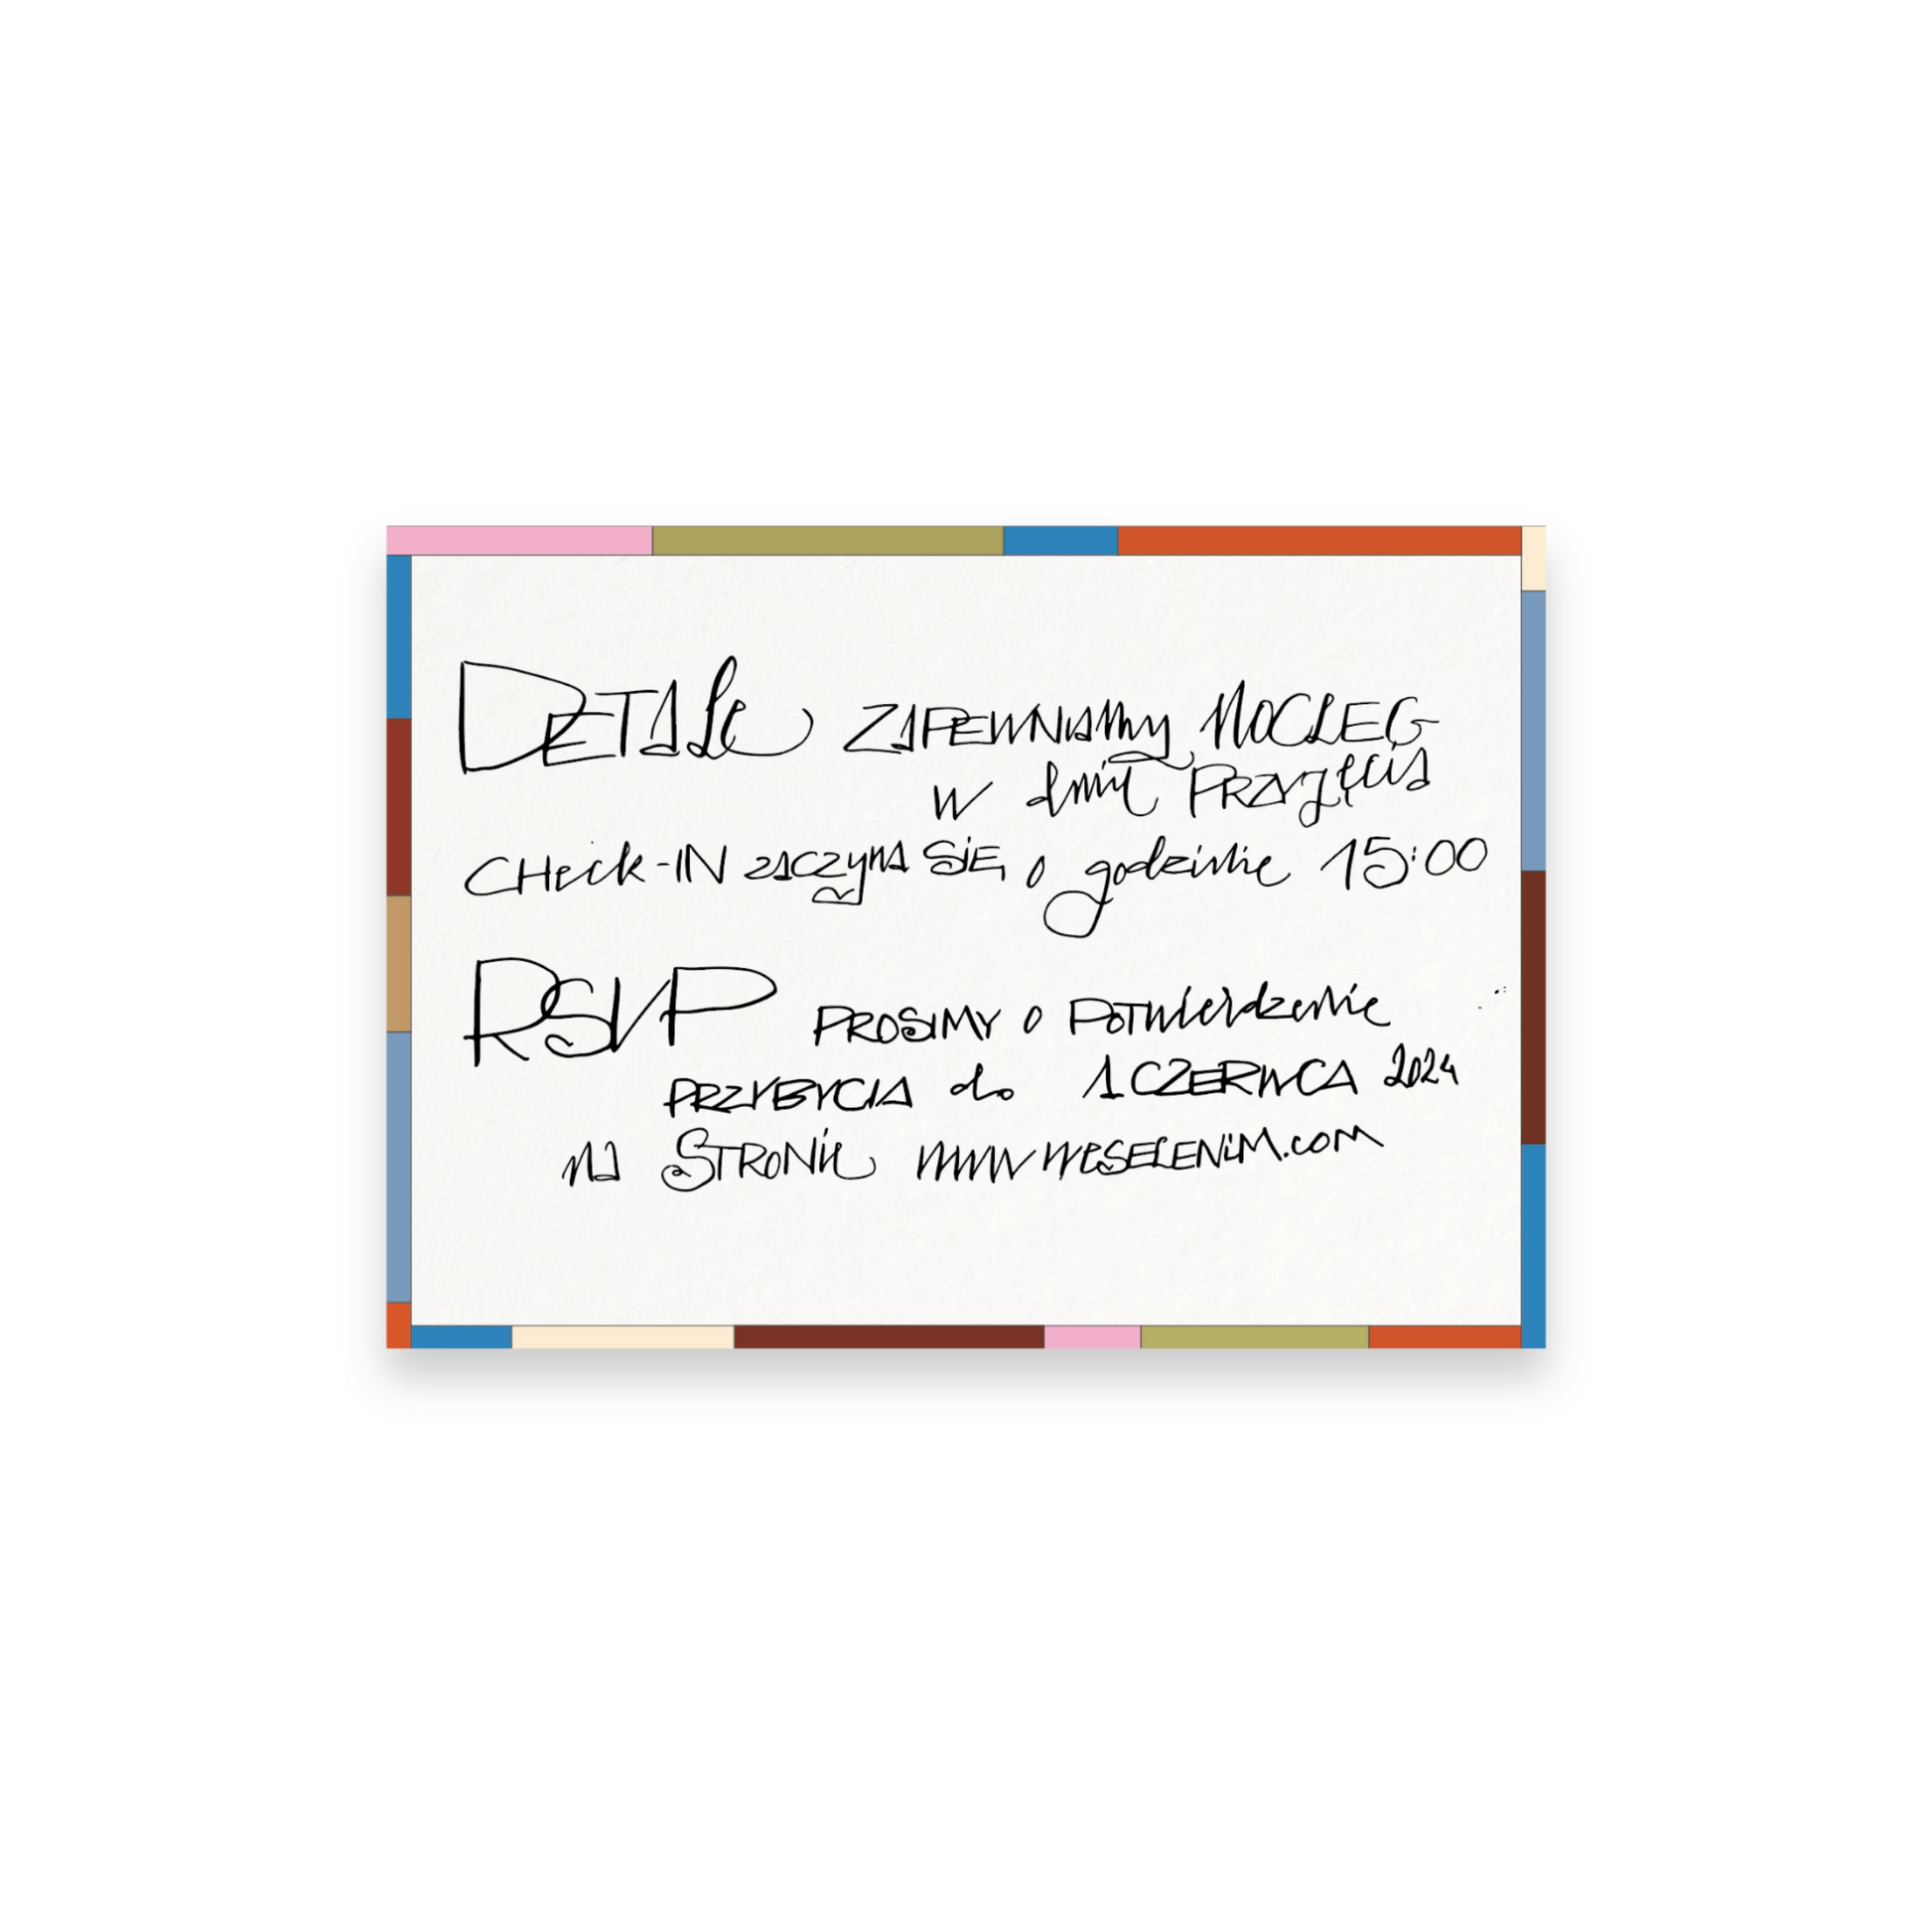 DETALE ZAPEWNIAMY NOCLEG
w dniu PRZYJĘCIA
CHeck-IN zaczyna SIĘ o godzinie 15:00
RSVP PROSIMY O POTwierdzenie
PRZYBYCIA do 1 CZERWCA 2024
na STRONIE www.weSELENIM.com